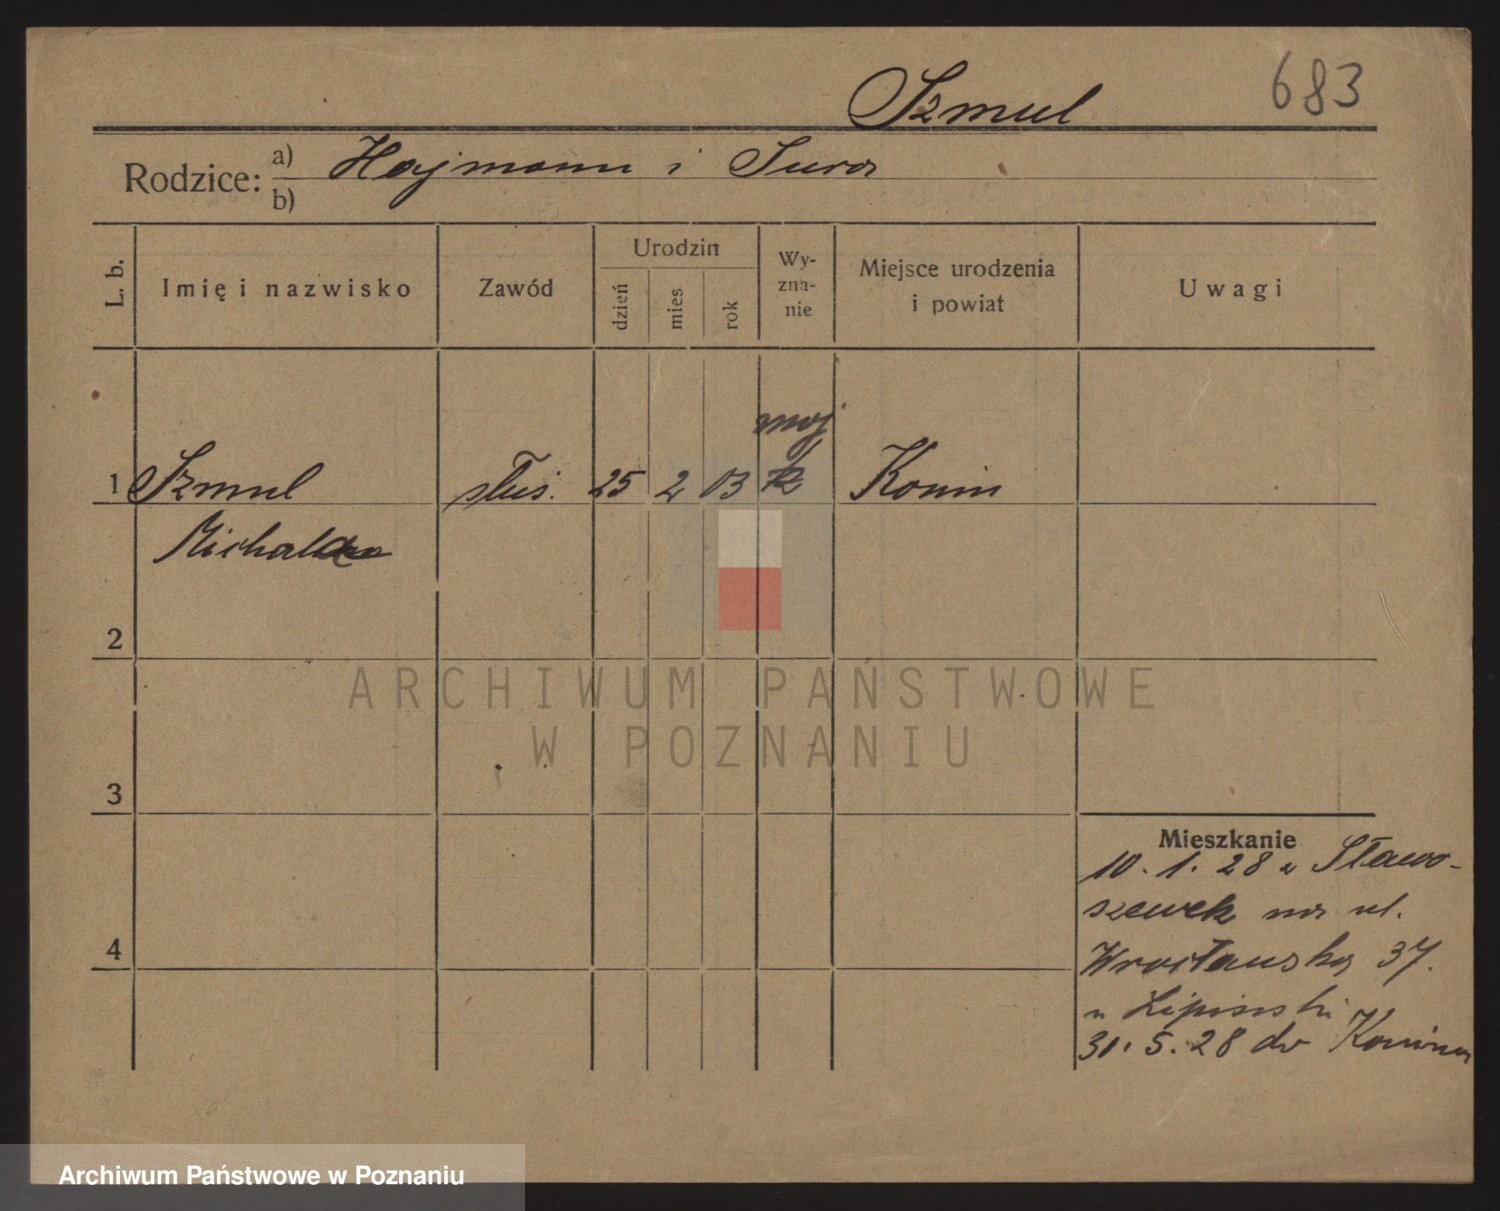 683
Szmul
Rodzice: a) Hajmann i Sura
b)
L. b.
Imię i nazwisko
Zawód
Urodzin
dzień
mies
rok
Wy-
zna-
nie
Miejsce urodzenia
i powiat
Uwagi
moj
1 Szmul służ. 25 2 03 Konin
Michal
2
3
4
Mieszkanie
10. 1. 28 z Sławo-
szewek na ul.
Wrocławską 37.
u Lipinski
31. 5. 28 do Konina
ARCHIWUM PAŃSTWOWE
W POZNANIU
Archiwum Państwowe w Poznaniu